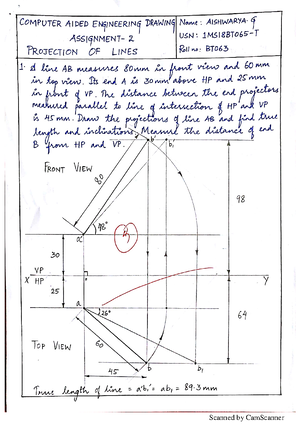 COMPUTER AIDED ENGINEERING DRAWING
ASSIGNMENT-2
PROJECTION OF LINES
Name: AISHWARYA·G
USN: 1MS18BT065-T
Roll no: BT063
1. A line AB measures 80mm in front view and 60mm
in top view. Its end A is 30mm above HP and 25mm
in front of VP. The distance between the end projectors
measured parallel to line of intersection of HP and VP
is 45mm. Draw the projections of line AB and find true
length and inclinations. Measure the distance of end
B from HP and VP.
b' b'₁
FRONT VIEW
80
98
48°
a'
30
X VP
HP Y
25
a
26°
64
TOP VIEW
60
b b₁
45
True length of line = a'b'₁ = ab₁ = 89.3mm
Scanned by CamScanner